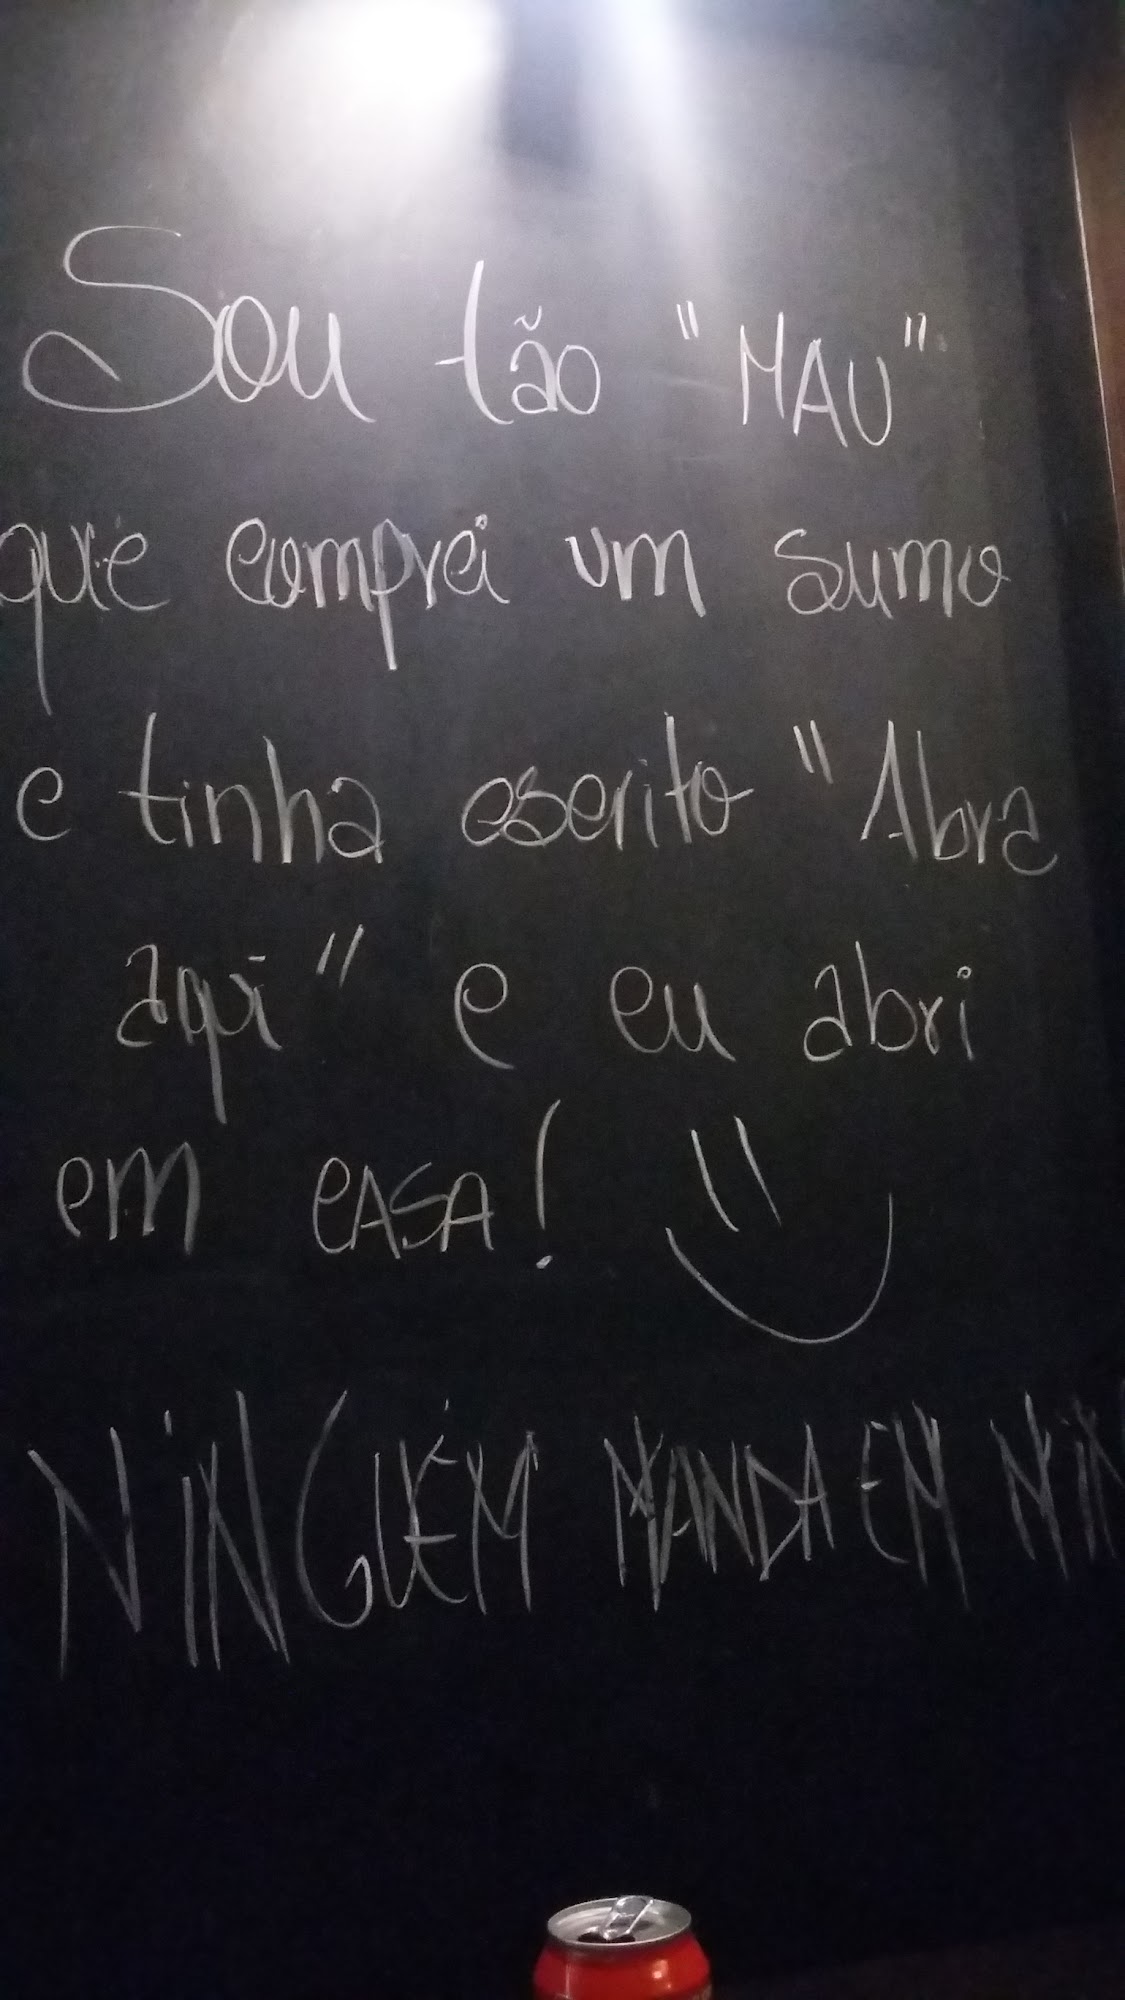 Sou tão "MAU"
que comprei um sumo
e tinha escrito "Abra
aqui" e eu abri
em cASA!
NiNGUÉM MANDA EM